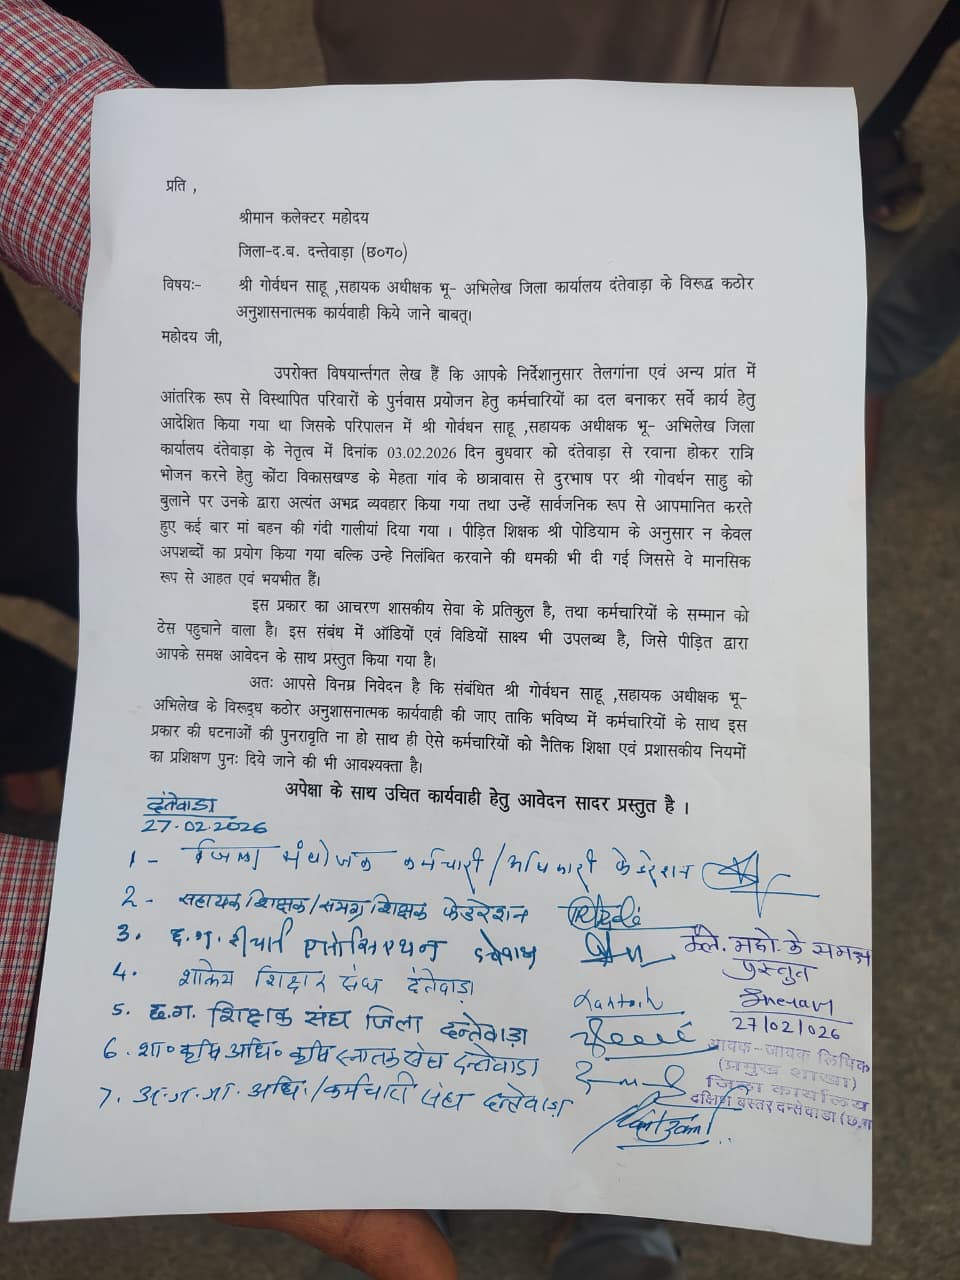 प्रति ,
श्रीमान कलेक्टर महोदय
जिला-द.ब. दन्तेवाड़ा (छ०ग०)
विषयः- श्री गोर्वधन साहू ,सहायक अधीक्षक भू- अभिलेख जिला कार्यालय दंतेवाड़ा के विरूद्व कठोर
अनुशासनात्मक कार्यवाही किये जाने बाबत्।
महोदय जी,
उपरोक्त विषयार्न्तगत लेख हैं कि आपके निर्देशानुसार तेलगांना एवं अन्य प्रांत में
आंतरिक रूप से विस्थापित परिवारों के पुर्नवास प्रयोजन हेतु कर्मचारियों का दल बनाकर सर्वे कार्य हेतु
आदेशित किया गया था जिसके परिपालन में श्री गोर्वधन साहू ,सहायक अधीक्षक भू- अभिलेख जिला
कार्यालय दंतेवाड़ा के नेतृत्व में दिनांक 03.02.2026 दिन बुधवार को दंतेवाड़ा से रवाना होकर रात्रि
भोजन करने हेतु कोंटा विकासखण्ड के मेहता गांव के छात्रावास से दुरभाष पर श्री गोवर्धन साहु को
बुलाने पर उनके द्वारा अत्यंत अभद्र व्यवहार किया गया तथा उन्हें सार्वजनिक रूप से आपमानित करते
हुए कई बार मां बहन की गंदी गालीयां दिया गया । पीड़ित शिक्षक श्री पोडियाम के अनुसार न केवल
अपशब्दों का प्रयोग किया गया बल्कि उन्हे निलंबित करवाने की धमकी भी दी गई जिससे वे मानसिक
रूप से आहत एवं भयभीत हैं।
इस प्रकार का आचरण शासकीय सेवा के प्रतिकुल है, तथा कर्मचारियों के सम्मान को
ठेस पहुचाने वाला है। इस संबंध में ऑडियों एवं विडियों साक्ष्य भी उपलब्ध है, जिसे पीड़ित द्वारा
आपके समक्ष आवेदन के साथ प्रस्तुत किया गया है।
अतः आपसे विनम्र निवेदन है कि संबंधित श्री गोर्वधन साहू ,सहायक अधीक्षक भू-
अभिलेख के विरूद्ध कठोर अनुशासनात्मक कार्यवाही की जाए ताकि भविष्य में कर्मचारियों के साथ इस
प्रकार की घटनाओं की पुनरावृति ना हो साथ ही ऐसे कर्मचारियों को नैतिक शिक्षा एवं प्रशासकीय नियमों
का प्रशिक्षण पुनः दिये जाने की भी आवश्यक्ता है।
अपेक्षा के साथ उचित कार्यवाही हेतु आवेदन सादर प्रस्तुत है ।
दंतेवाड़ा
27.02.2026
1 - जिला संयोजक कर्मचारी/अधिकारी फेडरेशन
2 - सहायक शिक्षक/समग्र शिक्षक फेडरेशन
3. छ.ग. टीचर्स एसोसिएशन दंतेवाड़ा
4. शालेय शिक्षक संघ दंतेवाड़ा
5. छ.ग. शिक्षक संघ जिला दन्तेवाड़ा
6. शा० कृषि अधि० कृषि स्नातक संघ दन्तेवाड़ा
7. अ.ज.जा. अधि./कर्मचारी संघ दन्तेवाड़ा
कले. महो. के समक्ष
प्रस्तुत
27/02/026
आवक-जावक लिपिक
(प्रमुख शाखा)
जिला कार्यालय
दक्षिण बस्तर दन्तेवाड़ा (छ.ग